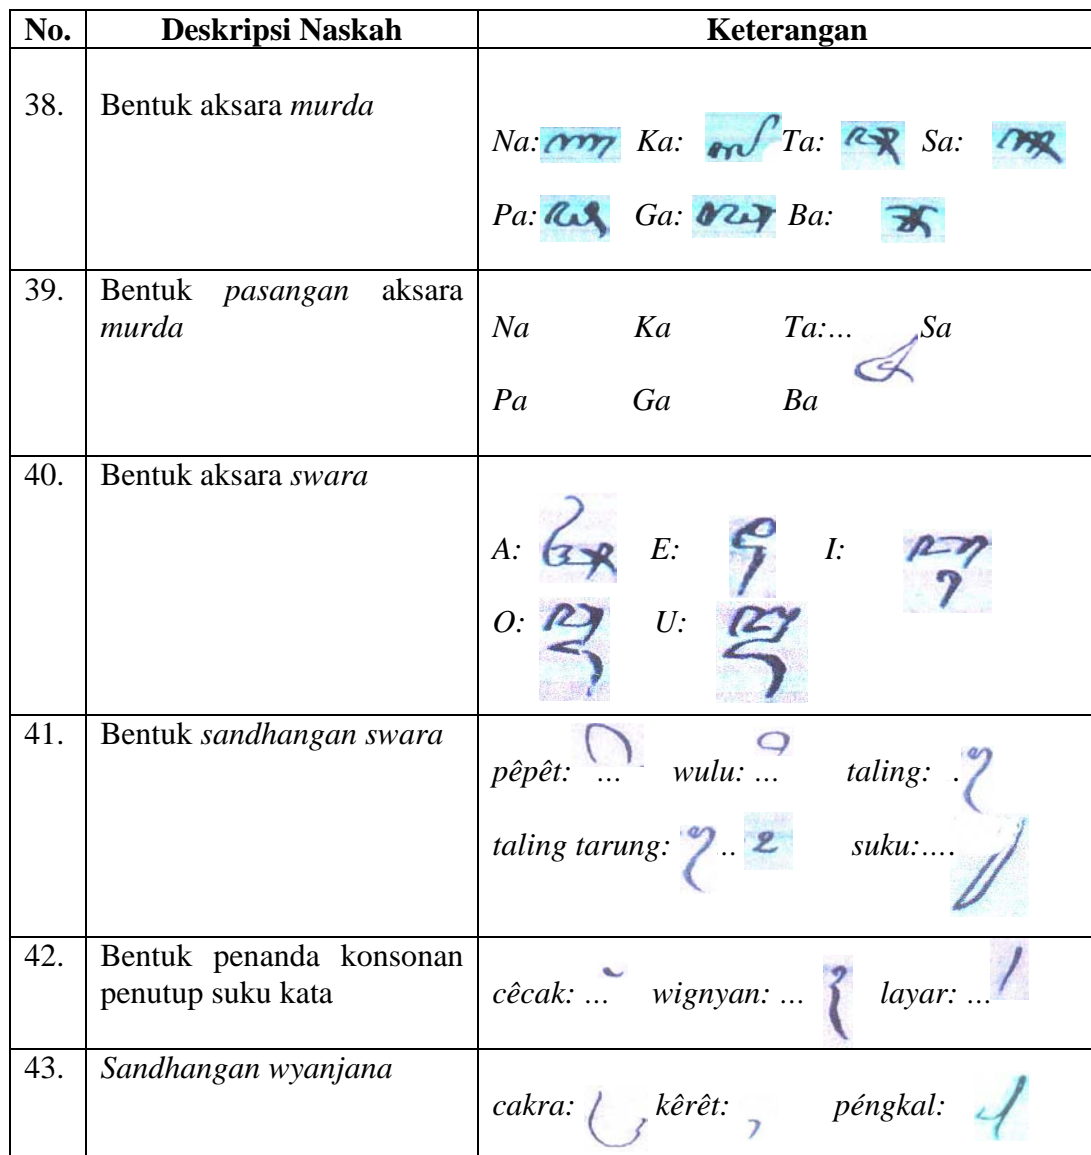 No. Deskripsi Naskah Keterangan
38. Bentuk aksara murda
Na: Ka: Ta: Sa:
Pa: Ga: Ba:
39. Bentuk pasangan aksara
murda
Na Ka Ta:... Sa
Pa Ga Ba
40. Bentuk aksara swara
A: E: I:
O: U:
41. Bentuk sandhangan swara
pêpêt: ... wulu: ... taling: .
taling tarung: .. suku:....
42. Bentuk penanda konsonan
penutup suku kata
cêcak: ... wignyan: ... layar: ...
43. Sandhangan wyanjana
cakra: kêrêt: péngkal: